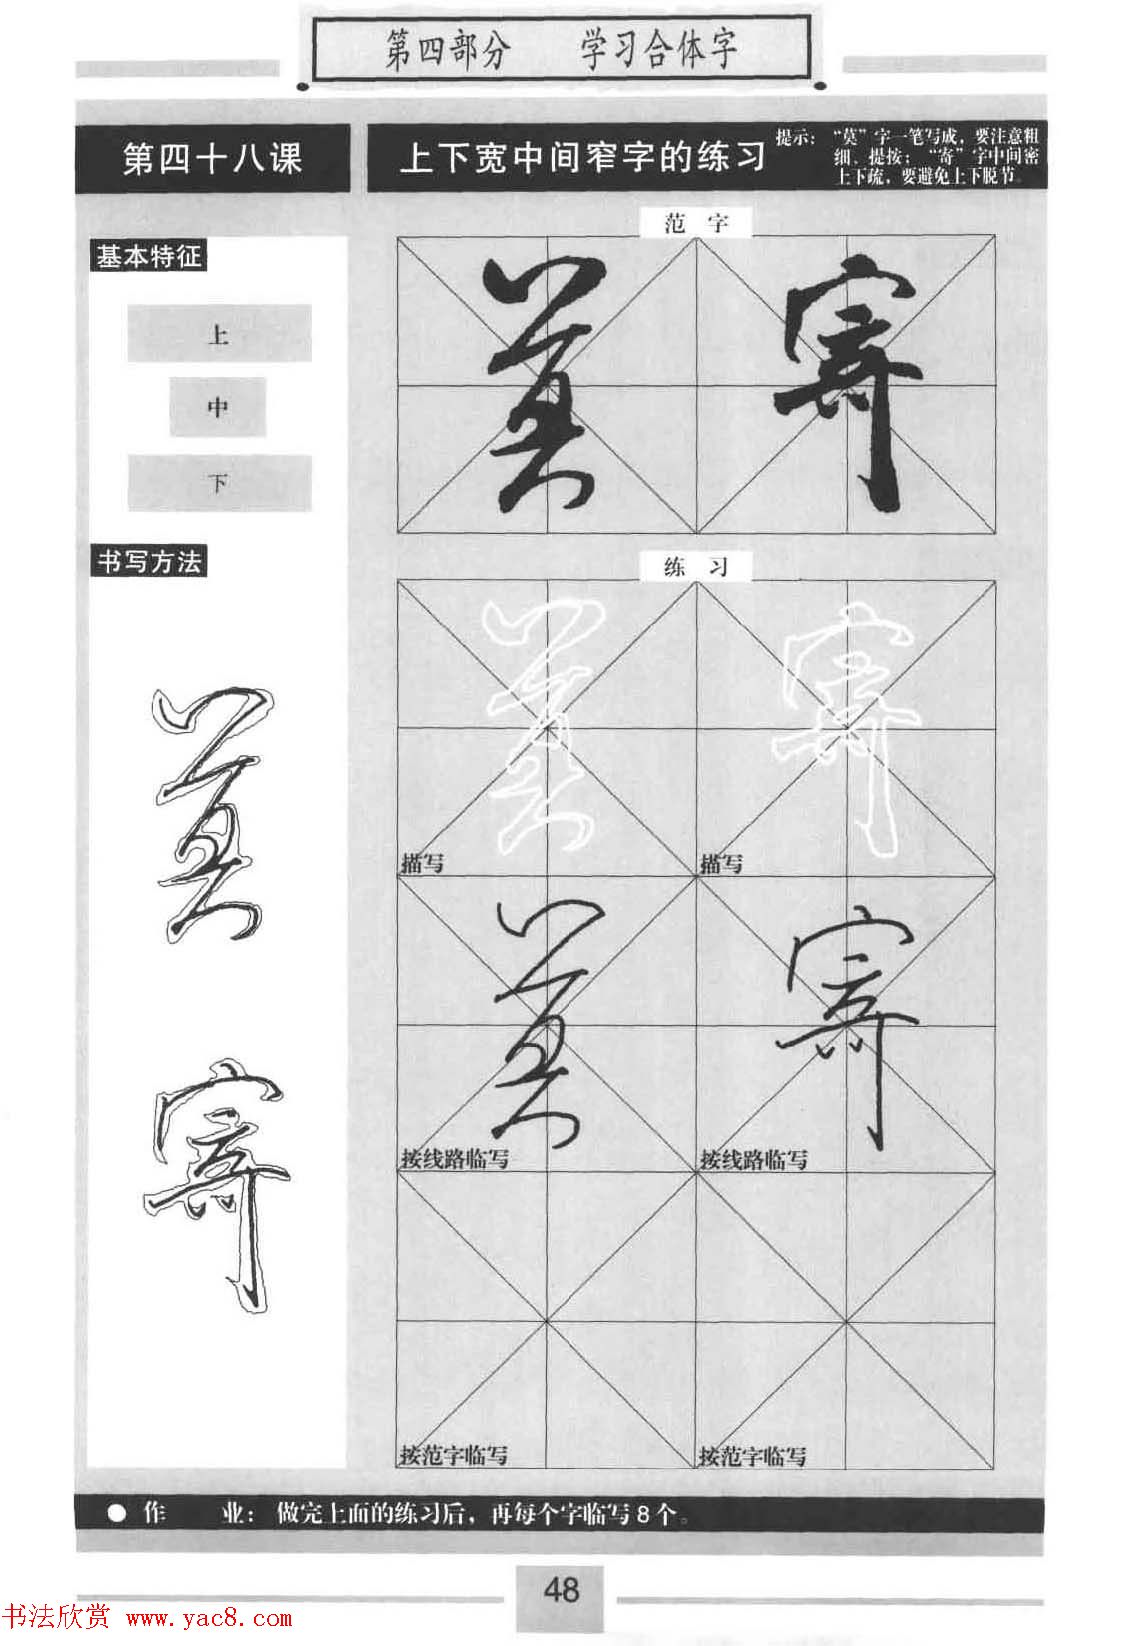 第四部分 学习合体字
第四十八课
上下宽中间窄字的练习
提示：“莫”字一笔写成，要注意粗
细、提按；“寄”字中间密
上下疏，要避免上下脱节。
基本特征
上
中
下
书写方法
莫
寄
范 字
莫 寄
练 习
莫 寄
描写 描写
莫 寄
按线路临写 按线路临写
按范字临写 按范字临写
● 作 业：做完上面的练习后，再每个字临写8个。
48
书法欣赏 www.yac8.com